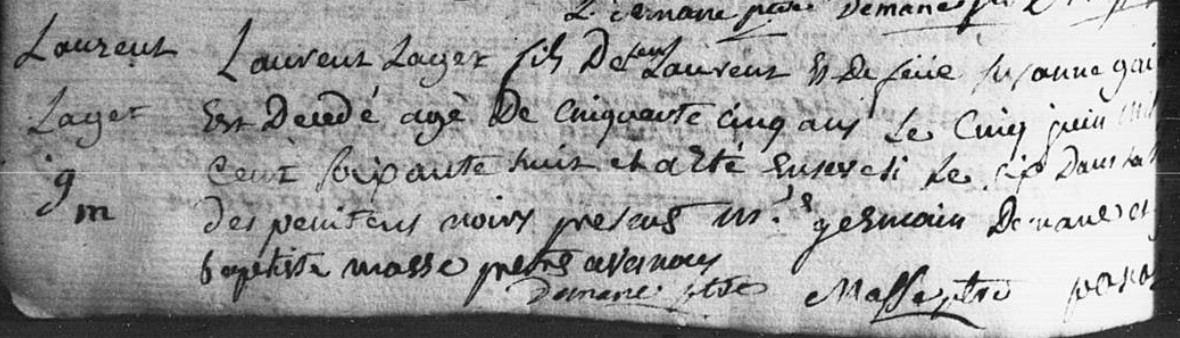 Demane ptre Demane
Laurent Laurent Lager fils De feu Laurent Et De feüe Susanne
Lager Est Decedé agé De Cinquante cinq ans Le Cinq juin mil
g m Cent soixante huit et a Eté Enseveli Le six Dans La
des penitens noirs presens mrs germain Demane et
baptiste masse pretre avenous
Demane ptre Masse ptre